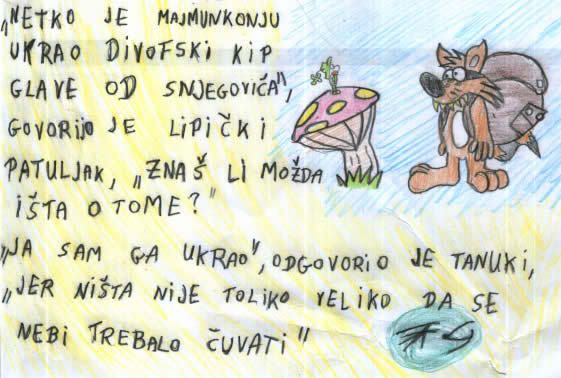 „NETKO JE MAJMUNKONJU
UKRAO DIVOFSKI KIP
GLAVE OD SNJEGOVIČA",
GOVORIJO JE LIPIČKI
PATULJAK, „ZNAŠ LI MOŽDA
IŠTA O TOME?"
„JA SAM GA UKRAO", ODGOVORIO JE TANUKI,
„JER NIŠTA NIJE TOLIKO VELIKO DA SE
NEBI TREBALO ČUVATI"